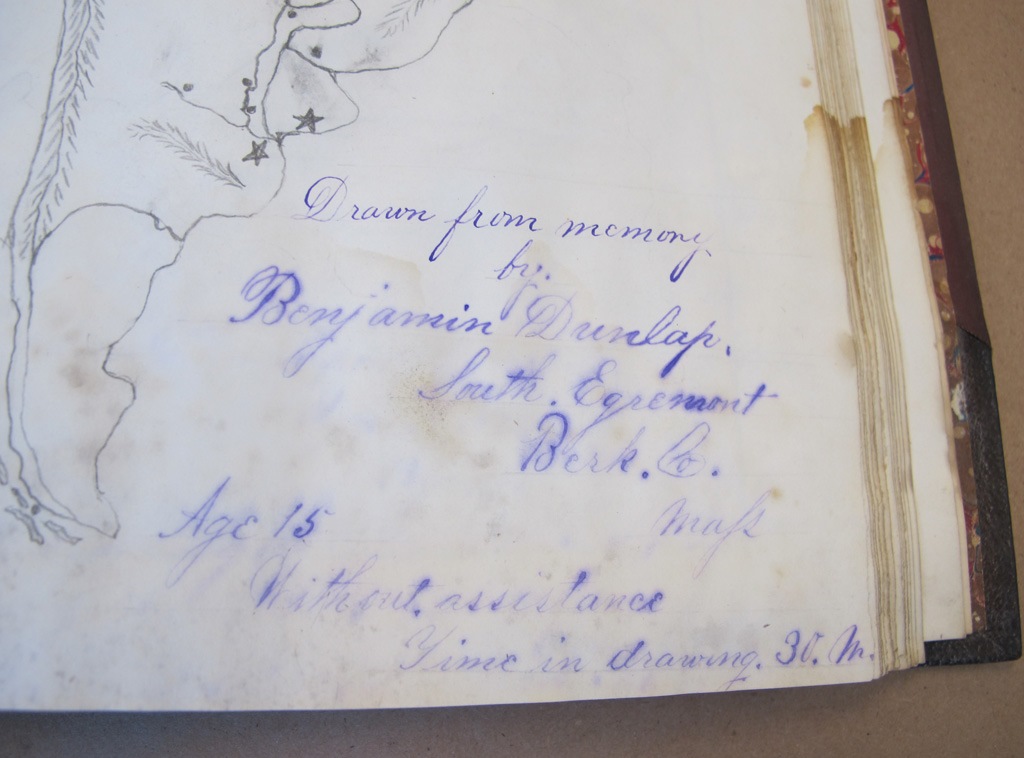 Drawn from memory
by.
Benjamin Dunlap.
South. Egremont
Berk. Co.
Mass
Age 15
Without. assistance
Time in drawing. 30. M.